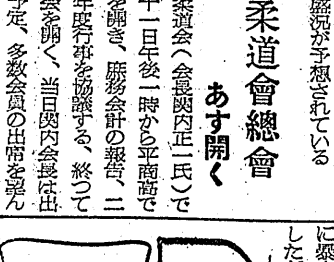 盛況が予想されている
柔道會總會
あす開く
柔道会(会長関内正一氏)で
十一日午後一時から平商高で
を開き、庶務会計の報告、二
年度行事を協議する、終つて
会を開く、当日関内会長は出
予定、多数会員の出席を望ん
に暴
した